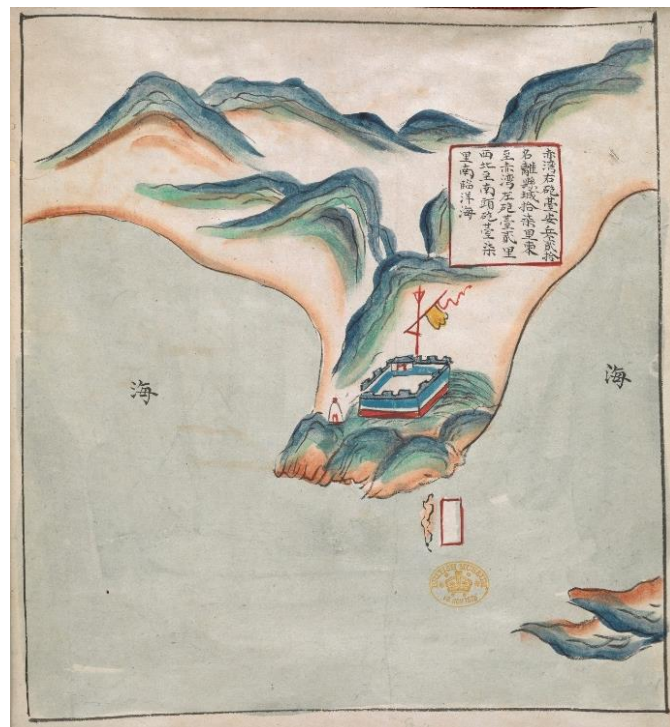 赤湾右砲臺安兵貳拾
名離縣城拾柒里東
至赤湾左砲臺貳里
西北至南頭砲臺柒
里南臨洋海
海
海